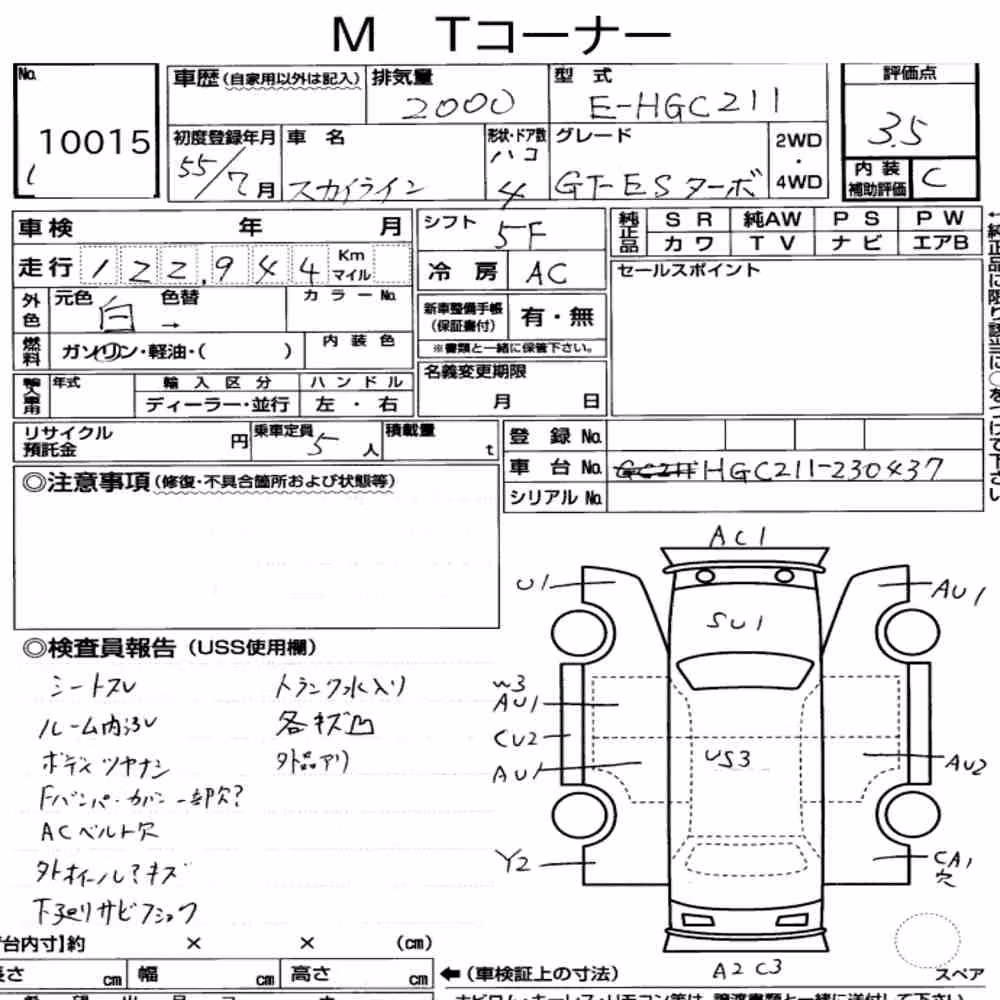 M Tコーナー
No. 車歴(自家用以外は記入) 排気量 型式 評価点
2000 E-HGC211
10015 3.5
初度登録年月 車名 形状・ドア数 グレード 2WD・4WD
55/7月 スカイライン ハコ 4 GT-ESターボ
内装補助評価 C
車検 年 月 シフト 5F 純正品 SR 純AW PS PW
カワ TV ナビ エアB
走行 122,944 Km マイル 冷房 AC
セールスポイント
外色 元色 白 色替 → カラーNo.
新車整備手帳(保証書付) 有・無
※書類と一緒に保管下さい。
燃料 ガソリン・軽油・( ) 内装色
名義変更期限 月 日
輸入車用 年式 輸入区分 ハンドル
ディーラー・並行 左・右
リサイクル預託金 円 乗車定員 5人 積載量 t
登録No.
車台No. GC211 HGC211-230437
シリアルNo.
◎注意事項(修復・不具合箇所および状態等)
AC1
U1 AU1
SU1
◎検査員報告(USS使用欄)
シートスレ トランク水入り
ルーム内汚レ 各キズ凸
ボディスツヤナシ 外品アリ
Fバンパーカバー一部欠?
ACベルト欠
外ホイール?キズ
下廻りサビフショク
W3
AU1
CU2
AU1 US3 AU2
Y2 CA1
穴
A2 C3
スペア
台内寸】約 × × (cm)
長さ cm 幅 cm 高さ cm ←(車検証上の寸法)